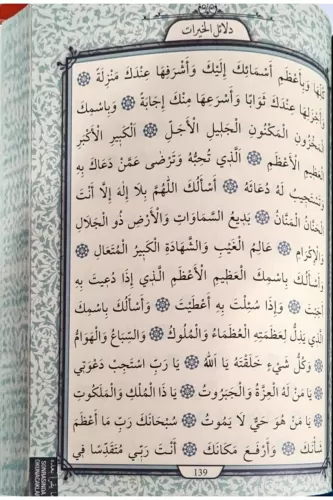 دلائل الخيرات
كُلِّهَا وَبِأَعْظَمِ أَسْمَائِكَ إِلَيْكَ وَأَشْرَفِهَا عِنْدَكَ مَنْزِلَةً
وَأَجْزَلِهَا عِنْدَكَ ثَوَابًا وَأَسْرَعِهَا مِنْكَ إِجَابَةً وَبِاسْمِكَ
الْمَخْزُونِ الْمَكْنُونِ الْجَلِيلِ الْأَجَلِّ الْكَبِيرِ الْأَكْبَرِ
الْعَظِيمِ الْأَعْظَمِ الَّذِي تُحِبُّهُ وَتَرْضَى عَمَّنْ دَعَاكَ بِهِ
وَتَسْتَجِيبُ لَهُ دُعَائَهُ أَسْأَلُكَ اللَّهُمَّ بِلَا إِلٰهَ إِلَّا أَنْتَ
الْحَنَّانُ الْمَنَّانُ بَدِيعُ السَّمَاوَاتِ وَالْأَرْضِ ذُو الْجَلَالِ
وَالْإِكْرَامِ عَالِمُ الْغَيْبِ وَالشَّهَادَةِ الْكَبِيرُ الْمُتَعَالِ
وَأَسْأَلُكَ بِاسْمِكَ الْعَظِيمِ الْأَعْظَمِ الَّذِي إِذَا دُعِيتَ بِهِ
أَجَبْتَ وَإِذَا سُئِلْتَ بِهِ أَعْطَيْتَ وَأَسْأَلُكَ بِاسْمِكَ
الَّذِي يَذِلُّ لِعَظَمَتِهِ الْعُظَمَاءُ وَالْمُلُوكُ وَالسِّبَاعُ وَالْهَوَامُّ
وَكُلُّ شَيْءٍ خَلَقْتَهُ يَا اَللهُ يَا رَبِّ اسْتَجِبْ دَعْوَتِي
يَا مَنْ لَهُ الْعِزَّةُ وَالْجَبَرُوتُ يَا ذَا الْمُلْكِ وَالْمَلَكُوتِ
يَا مَنْ هُوَ حَيٌّ لَا يَمُوتُ سُبْحَانَكَ رَبِّ مَا أَعْظَمَ
شَأْنَكَ وَأَرْفَعَ مَكَانَكَ أَنْتَ رَبِّي مُتَقَدِّسًا فِي
139